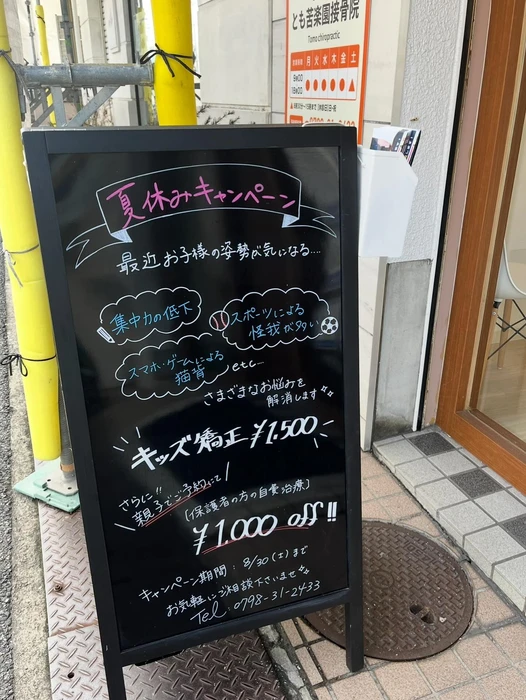 とも苦楽園接骨院
Tomo chiropractic
月火水木金土
9:00
夏休みキャンペーン
最近お子様の姿勢が気になる....
集中力の低下
スポーツによる
怪我が多い
スマホ・ゲームによる
猫背
etc...
さまざまなお悩みを
解消します
キッズ矯正 ¥1,500
さらに!!
親子でご予約にて
(保護者の方の自費治療)
¥1,000 off!!
キャンペーン期間:8/30(土)まで
お気軽にご相談下さいませ
Tel.0798-31-2433